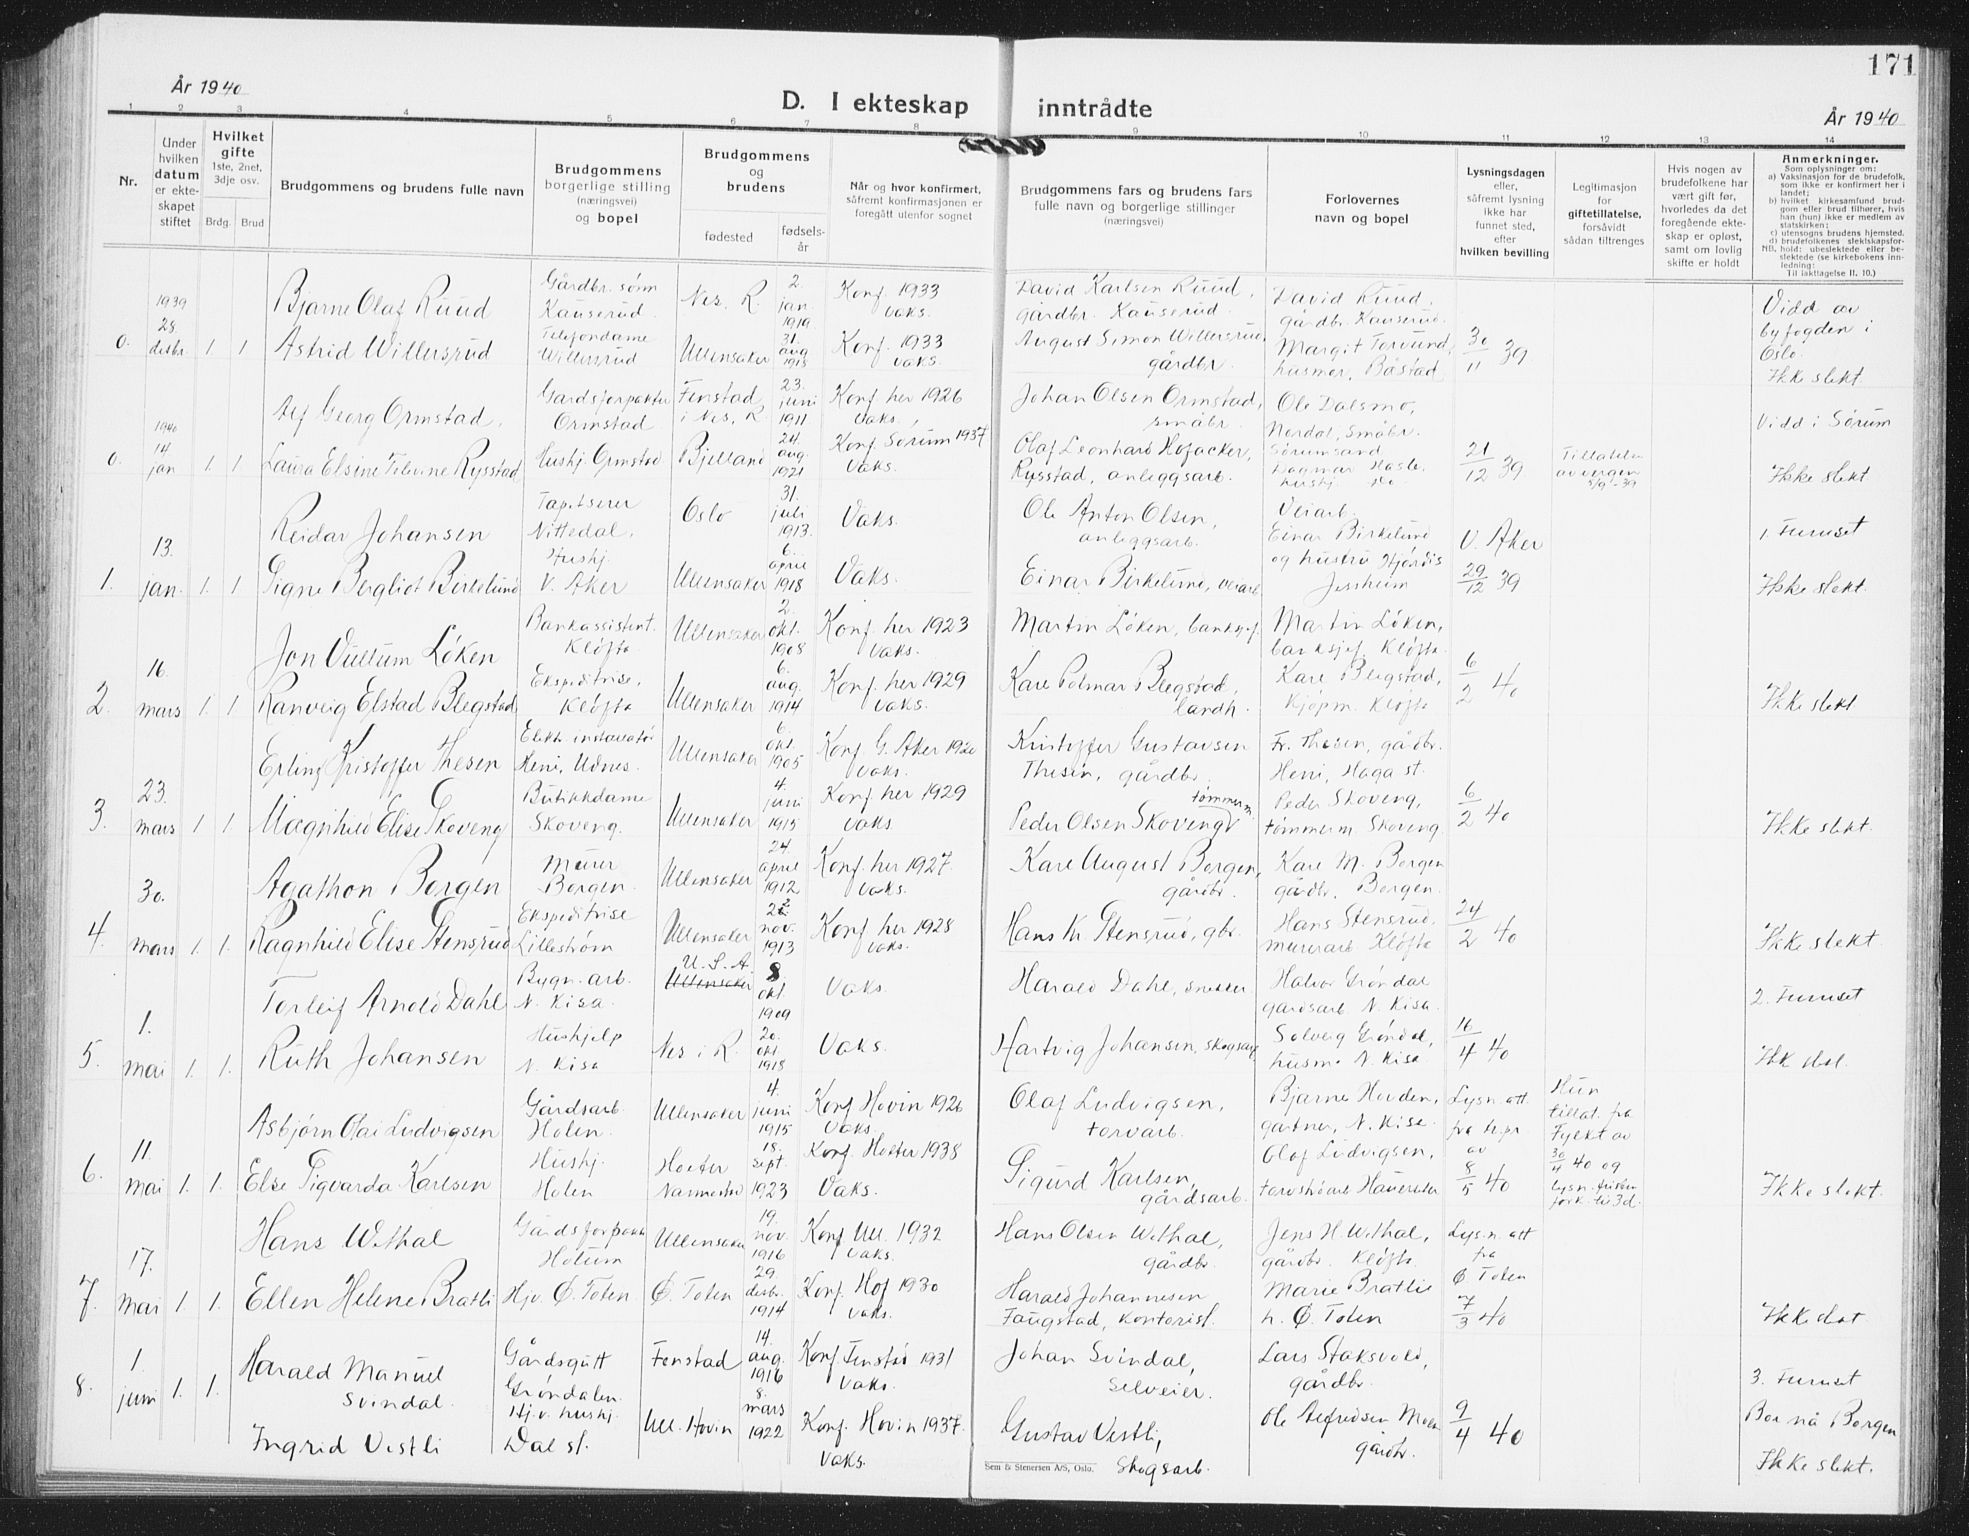 171
År 1940
D. I ekteskap inntrådte
År 1940
1 2 3 4 5 6 7 8 9 10 11 12 13 14
Nr.
Under hvilken datum er ekte-skapet stiftet
Hvilket gifte
1ste, 2net, 3dje osv.
Brdg. Brud
Brudgommens og brudens fulle navn
Brudgommens borgerlige stilling (næringsvei) og bopel
Brudgommens og brudens
fødested
fødsels-år
Når og hvor konfirmert, såfremt konfirmasjonen er foregått utenfor sognet
Brudgommens fars og brudens fars fulle navn og borgerlige stillinger (næringsvei)
Forlovernes navn og bopel
Lysningsdagen eller, såfremt lysning ikke har funnet sted, efter hvilken bevilling
Legitimasjon for giftetillatelse, forsåvidt sådan tiltrenges
Hvis nogen av brudefolkene har vært gift før, hvorledes da det foregående ekte-skap er opløst, samt om lovlig skifte er holdt
Anmerkninger.
Som oplysninger om:
a) Vaksinasjon for de brudefolk, som ikke er konfirmert her i landet;
b) hvilket kirkesamfund brud-gom eller brud tilhører, hvis han (hun) ikke er medlem av statskirken;
c) utensogns brudens hjemsted.
d) brudefolkenes slektskapsfor-hold: ubeslektede eller be-slektede (se kirkebokens inn-ledning:
NB. Til iakttagelse II. 10.)
0. 1939 28. desbr. 1 1
Bjarne Olaf Ruud
Gårdbr. sønn Kauserud.
Nes, R.
2. jan. 1919
Konf. 1933 vaks.
David Karlsen Ruud, gårdbr. Kauserud.
David Ruud, gårdbr. Kauserud.
Astrid Willersrud
Telefondame Willersrud
Ullensaker
31. aug
Konf. 1933 vaks.
August Simon Willersrud, gårdbr.
Margit Torvund, husmor, Båstad
30/11 39
Vidd av byfogden i Oslo.
Ikke slekt
0. 1940 14. jan 1. 1
Alf Georg Ormstad.
Gardsforpakter Ormstad.
Fenstad i Nes, R.
23. juni 1911
Konf. her 1926 Vaks.
Johan Olsen Ormstad, småbr.
Ole Dalsmo, Nordal, Småbr.
Laura Elsine Rysstad
Hushj. Ormstad
Bjelland
24. aug. 1921
Konf. Sørum 1937 Vaks.
Olaf Leonhard Hofacker, Rysstad, anleggsarb.
Sørumsand Dagmar Hasle, hushj. do
21/12 39
Tillatelse av vergen 5/9-39
Vidd i Sørum
Ikke slekt
1. 13. jan. 1. 1
Reidar Johansen
Tapetserer Nittedal.
Oslo
31. juli 1913.
Vaks.
Ole Anton Olsen, anleggsarb.
Veiarb. Einar Birkelund og hustru Hjørdis Jessheim
Signe Bergliot Birkelund
Hushj. V. Aker
Ullensaker
6. april 1918
Vaks.
Einar Birkelund, veiarb.
V. Aker 29/12 39
1. Furuset
Ikke slekt.
2. 16. mars 1. 1
Jon Vullum Løken
Bankassistent. Kløfta.
Ullensaker
2. okt. 1908
Konf. her 1923 vaks.
Martin Løken, banksjef.
Martin Løken, banksjef. Kløfta.
Ranveig Elstad Blegstad
Ekspeditrise, Kløfta
Ullensaker
6. aug. 1914
Konf. her 1929 vaks.
Kare Polmar Blegstad, landh.
Kare Blegstad, Kjøpm. Kløfta
6/2 40
Ikke slekt
3. 23. mars 1 1
Erling Kristoffer Thesen
Elektr. installatør Heni, Udnes.
Ullensaker
6. okt. 1905
Konf. G. Aker 1920 vaks.
Kristoffer Gustavsen Thesen, gårdbr.
Fr. Thesen, gårdbr. Heni, Haga st.
Magnhild Elise Skoveng
Butikkdame Skoveng.
Ullensaker
4. juni 1915
Konf. her 1929 vaks.
Peder Olsen Skoveng tømmerm.
Peder Skoveng, tømmerm. Skoveng.
6/2 40
Ikke slekt.
4. 30. mars 1. 1.
Agathon Borgen
Murer Borgen.
Ullensaker
24. april 1912
Konf. her 1927. vaks.
Kare August Borgen, gårdbr.
Kare M. Borgen gårdbr. Borgen.
Ragnhild Elise Stensrud
Ekspeditrise Lillestrøm
Ullensaker
nov. 1913
Konf her 1928 vaks.
Hans Kr. Stensrud, gbr.
Hans Stensrud, murerarb. Kløfta
24/2 40
Ikke slekt.
5. 1. mai 1. 1.
Torleif Arnold Dahl
Bygn. arb. N. Kisa.
U. S. A.
Ullensaker
8. okt. 1909
Vaks.
Harald Dahl, snekker
Halvor Grøndal gardsarb. N. Kisa.
Ruth Johansen
Hushjelp N. Kisa
Nes i R.
20. okt. 1918
Vaks.
Hartvig Johansen, skogsarb
Solveig Grøndal, husmo. N. Kisa
16/4 40
2. Furuset
6. 11. mai 1. 1.
Asbjørn Olai Ludvigsen
Gårdsarb. Holen.
Ullensaker
4. juni 1915
Konf Hovin 1926 Vaks.
Olaf Ludvigsen, torvarb.
Bjarne Hovden, gartner, N. Kisa.
Else Sigvarda Karlsen
Hushj. Holen
Holter Nannestad
18. sept. 1923
Konf. Holter 1938 Vaks.
Sigurd Karlsen, gårdsarb.
Olaf Ludvigsen, torvstrøarb
Lysn. att fra h.pr. av 8/5 40
Hun tillat. fra Fylket av 30/4 40 og lysn. fristen fork. til 3 d.
Ikke slekt.
7. 17. mai 1. 1.
Hans Wethal
Gårdsforpakt Hotum
Ullensaker
19. nov. 1916
Konf Ull. 1932 Vaks.
Hans Olsen Wethal, gårdbr.
Jens H. Wethal, gårdbr. Kløfta.
Ellen Helene Bratli
Hjv. Ø. Toten.
Ø. Toten
29. desbr. 1914
Konf. Hof 1930 vaks.
Harald Johannesen Faugstad, kontorist.
Marie Bratlie h. Ø. Toten
Lysn. att fra Ø Toten 7/3 40
8. 1. juni 1. 1.
Harald Manuel Svindal.
Gårdsgutt Grøndalen.
Fenstad
14. aug. 1916
Konf. Fenstad 1931 Vaks.
Johan Svindal, Selveier.
Lars Staksvold, gårdbr.
3. Furuset
Ingrid Vestli
Hj.v. hushj. Dal st.
Ull. Hovin
8. mars 1922
Konf. Hovin 1937. Vaks.
Gustav Vestli, Skogsarb.
Ole Alfredsen Moen gårdbr.
9/4 40
Bor nå Borgen
Ikke slekt.
Sem & Stenersen A/S, Oslo.